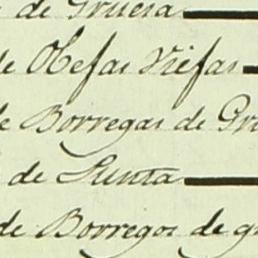 de Gruesa
de Obejas Viejas
de Borregas de Gru
de Punta
de Borregos de gr